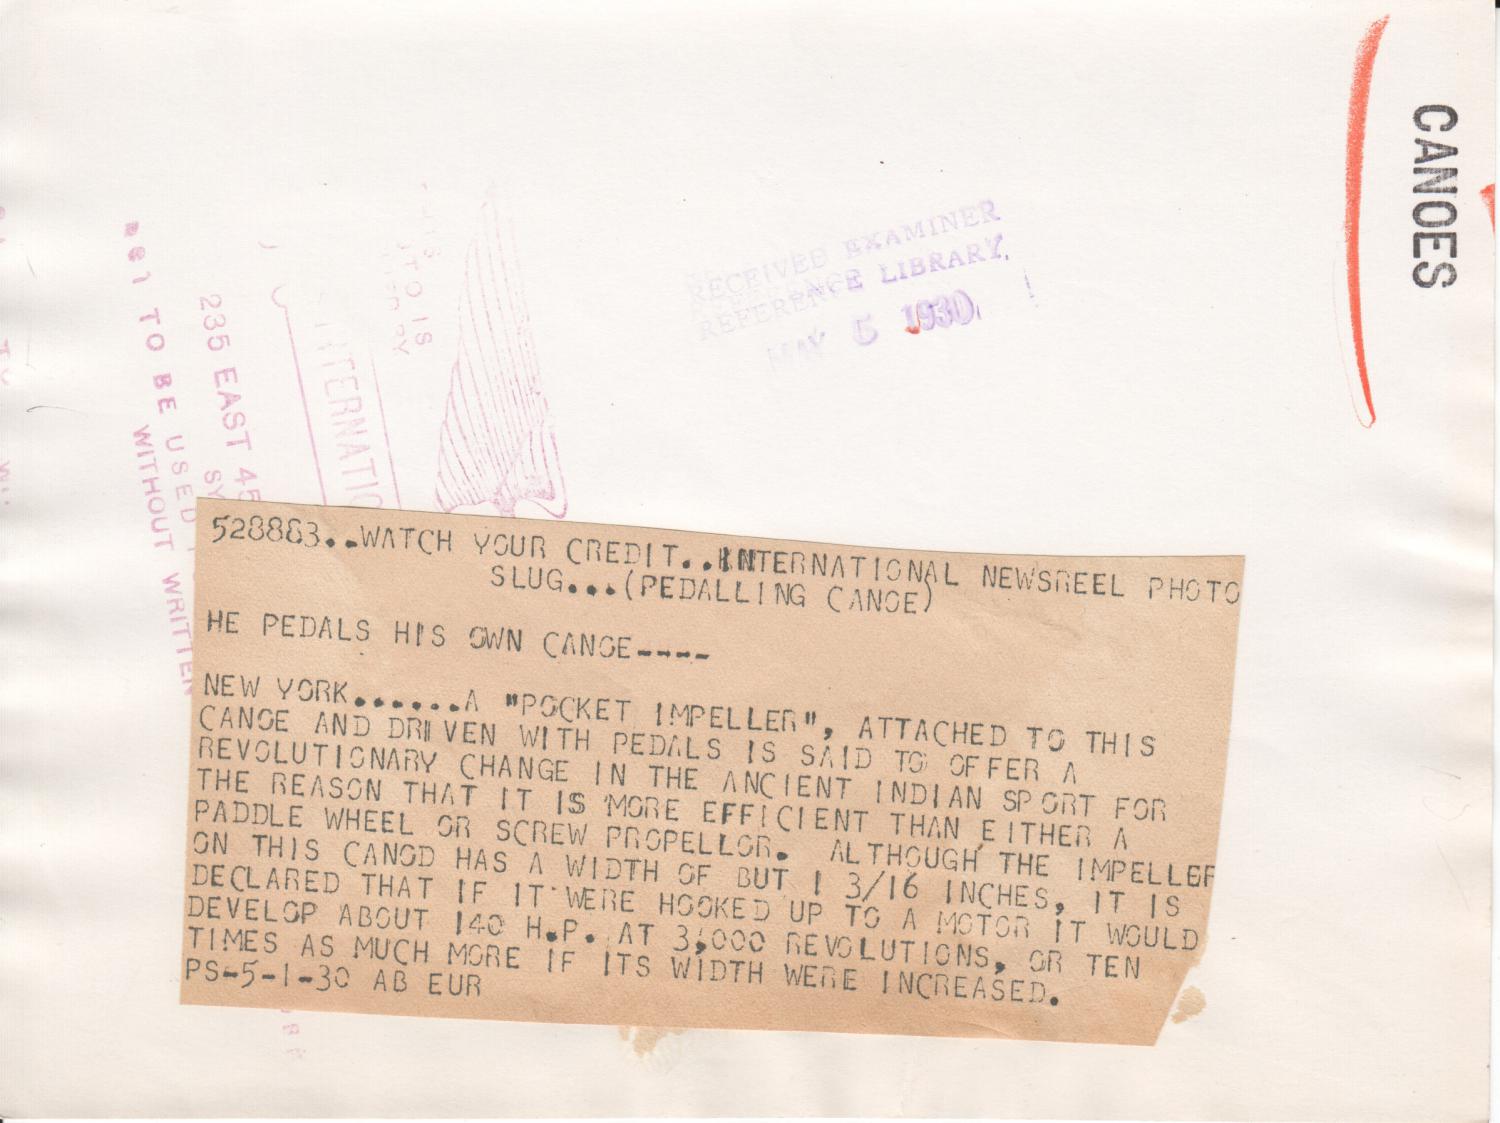 CANOES
RECEIVED EXAMINER
REFERENCE LIBRARY.
MAY 5 1930
TO IS
INTERNATIO
235 EAST 45
TO BE USED
WITHOUT WRITTEN
528883..WATCH YOUR CREDIT..INTERNATIONAL NEWSREEL PHOTO
SLUG...(PEDALLING CANOE)
HE PEDALS HIS OWN CANOE----
NEW YORK.......A "POCKET IMPELLER", ATTACHED TO THIS
CANOE AND DRIVEN WITH PEDALS IS SAID TO OFFER A
REVOLUTIONARY CHANGE IN THE ANCIENT INDIAN SPORT FOR
THE REASON THAT IT IS MORE EFFICIENT THAN EITHER A
PADDLE WHEEL OR SCREW PROPELLOR. ALTHOUGH THE IMPELLER
ON THIS CANOD HAS A WIDTH OF BUT 1 3/16 INCHES, IT IS
DECLARED THAT IF IT WERE HOOKED UP TO A MOTOR IT WOULD
DEVELOP ABOUT 140 H.P. AT 3,000 REVOLUTIONS, OR TEN
TIMES AS MUCH MORE IF ITS WIDTH WERE INCREASED.
PS-5-1-30 AB EUR